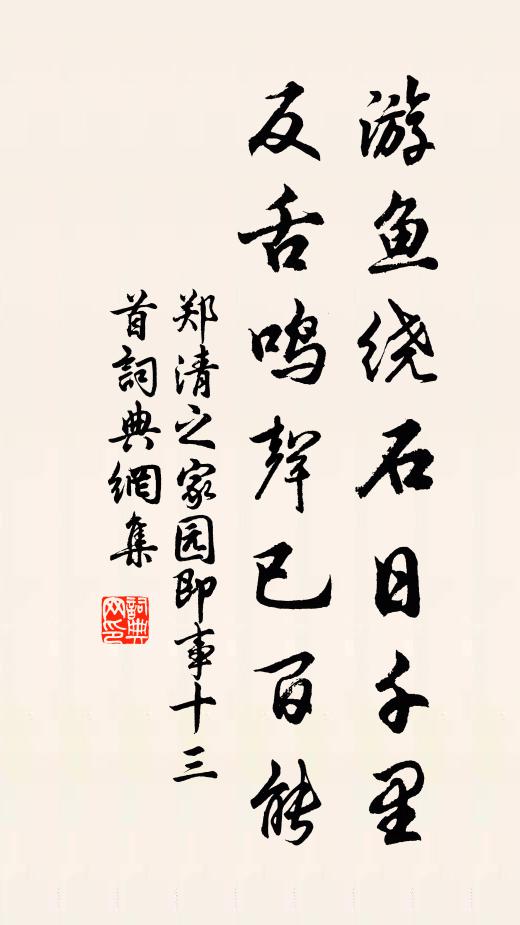 游鱼绕石日千里
反舌鸣聲已百能
郑清之家园即事十三
首詞典網集
詞典
网印